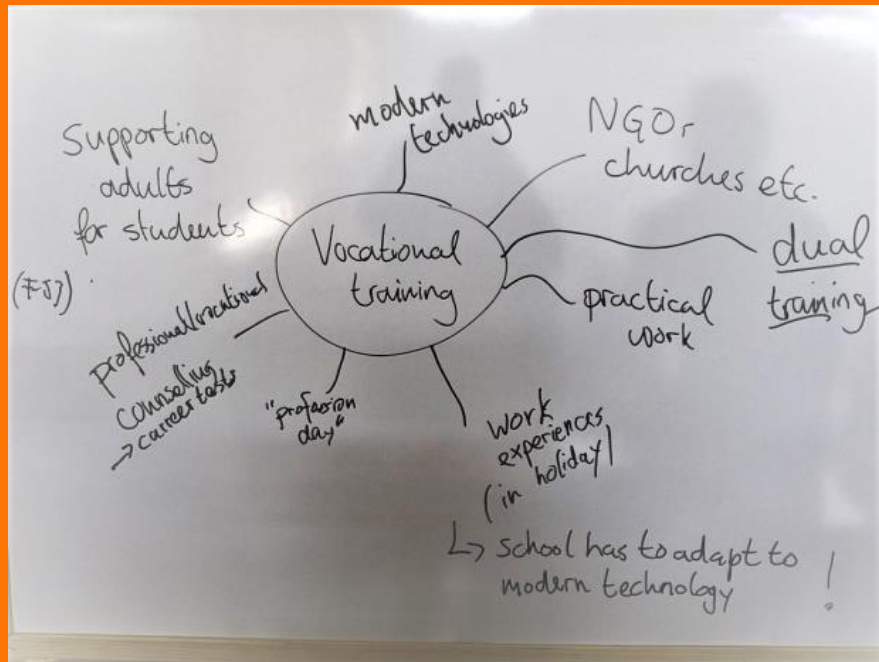 modern
technologies
NGOs
churches etc.
dual
training
practical
work
work
experiences
(in holiday)
↳ school has to adapt to
modern technology !
"profession
day"
professional/vocational
counseling
→ carreer tests
Supporting
adults
for students
(FSJ)
Vocational
training